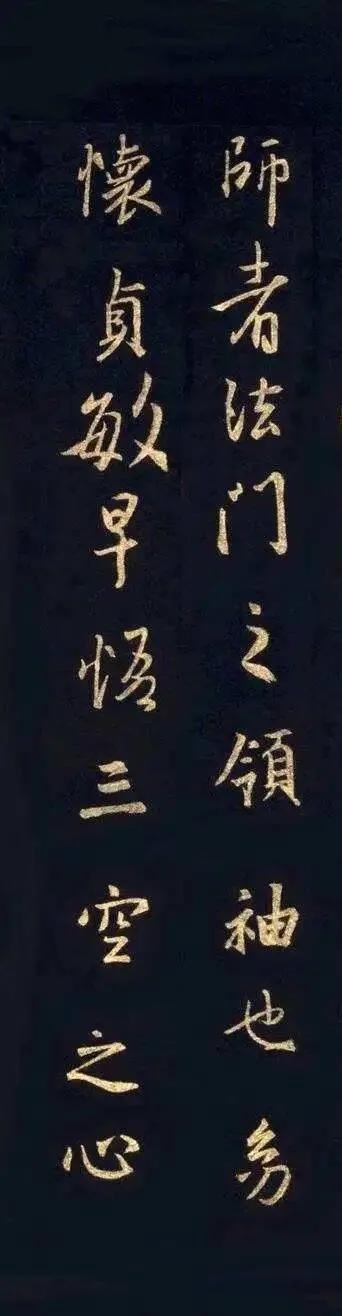 師者法门之領袖也㓜
懷貞敏早悟三空之心